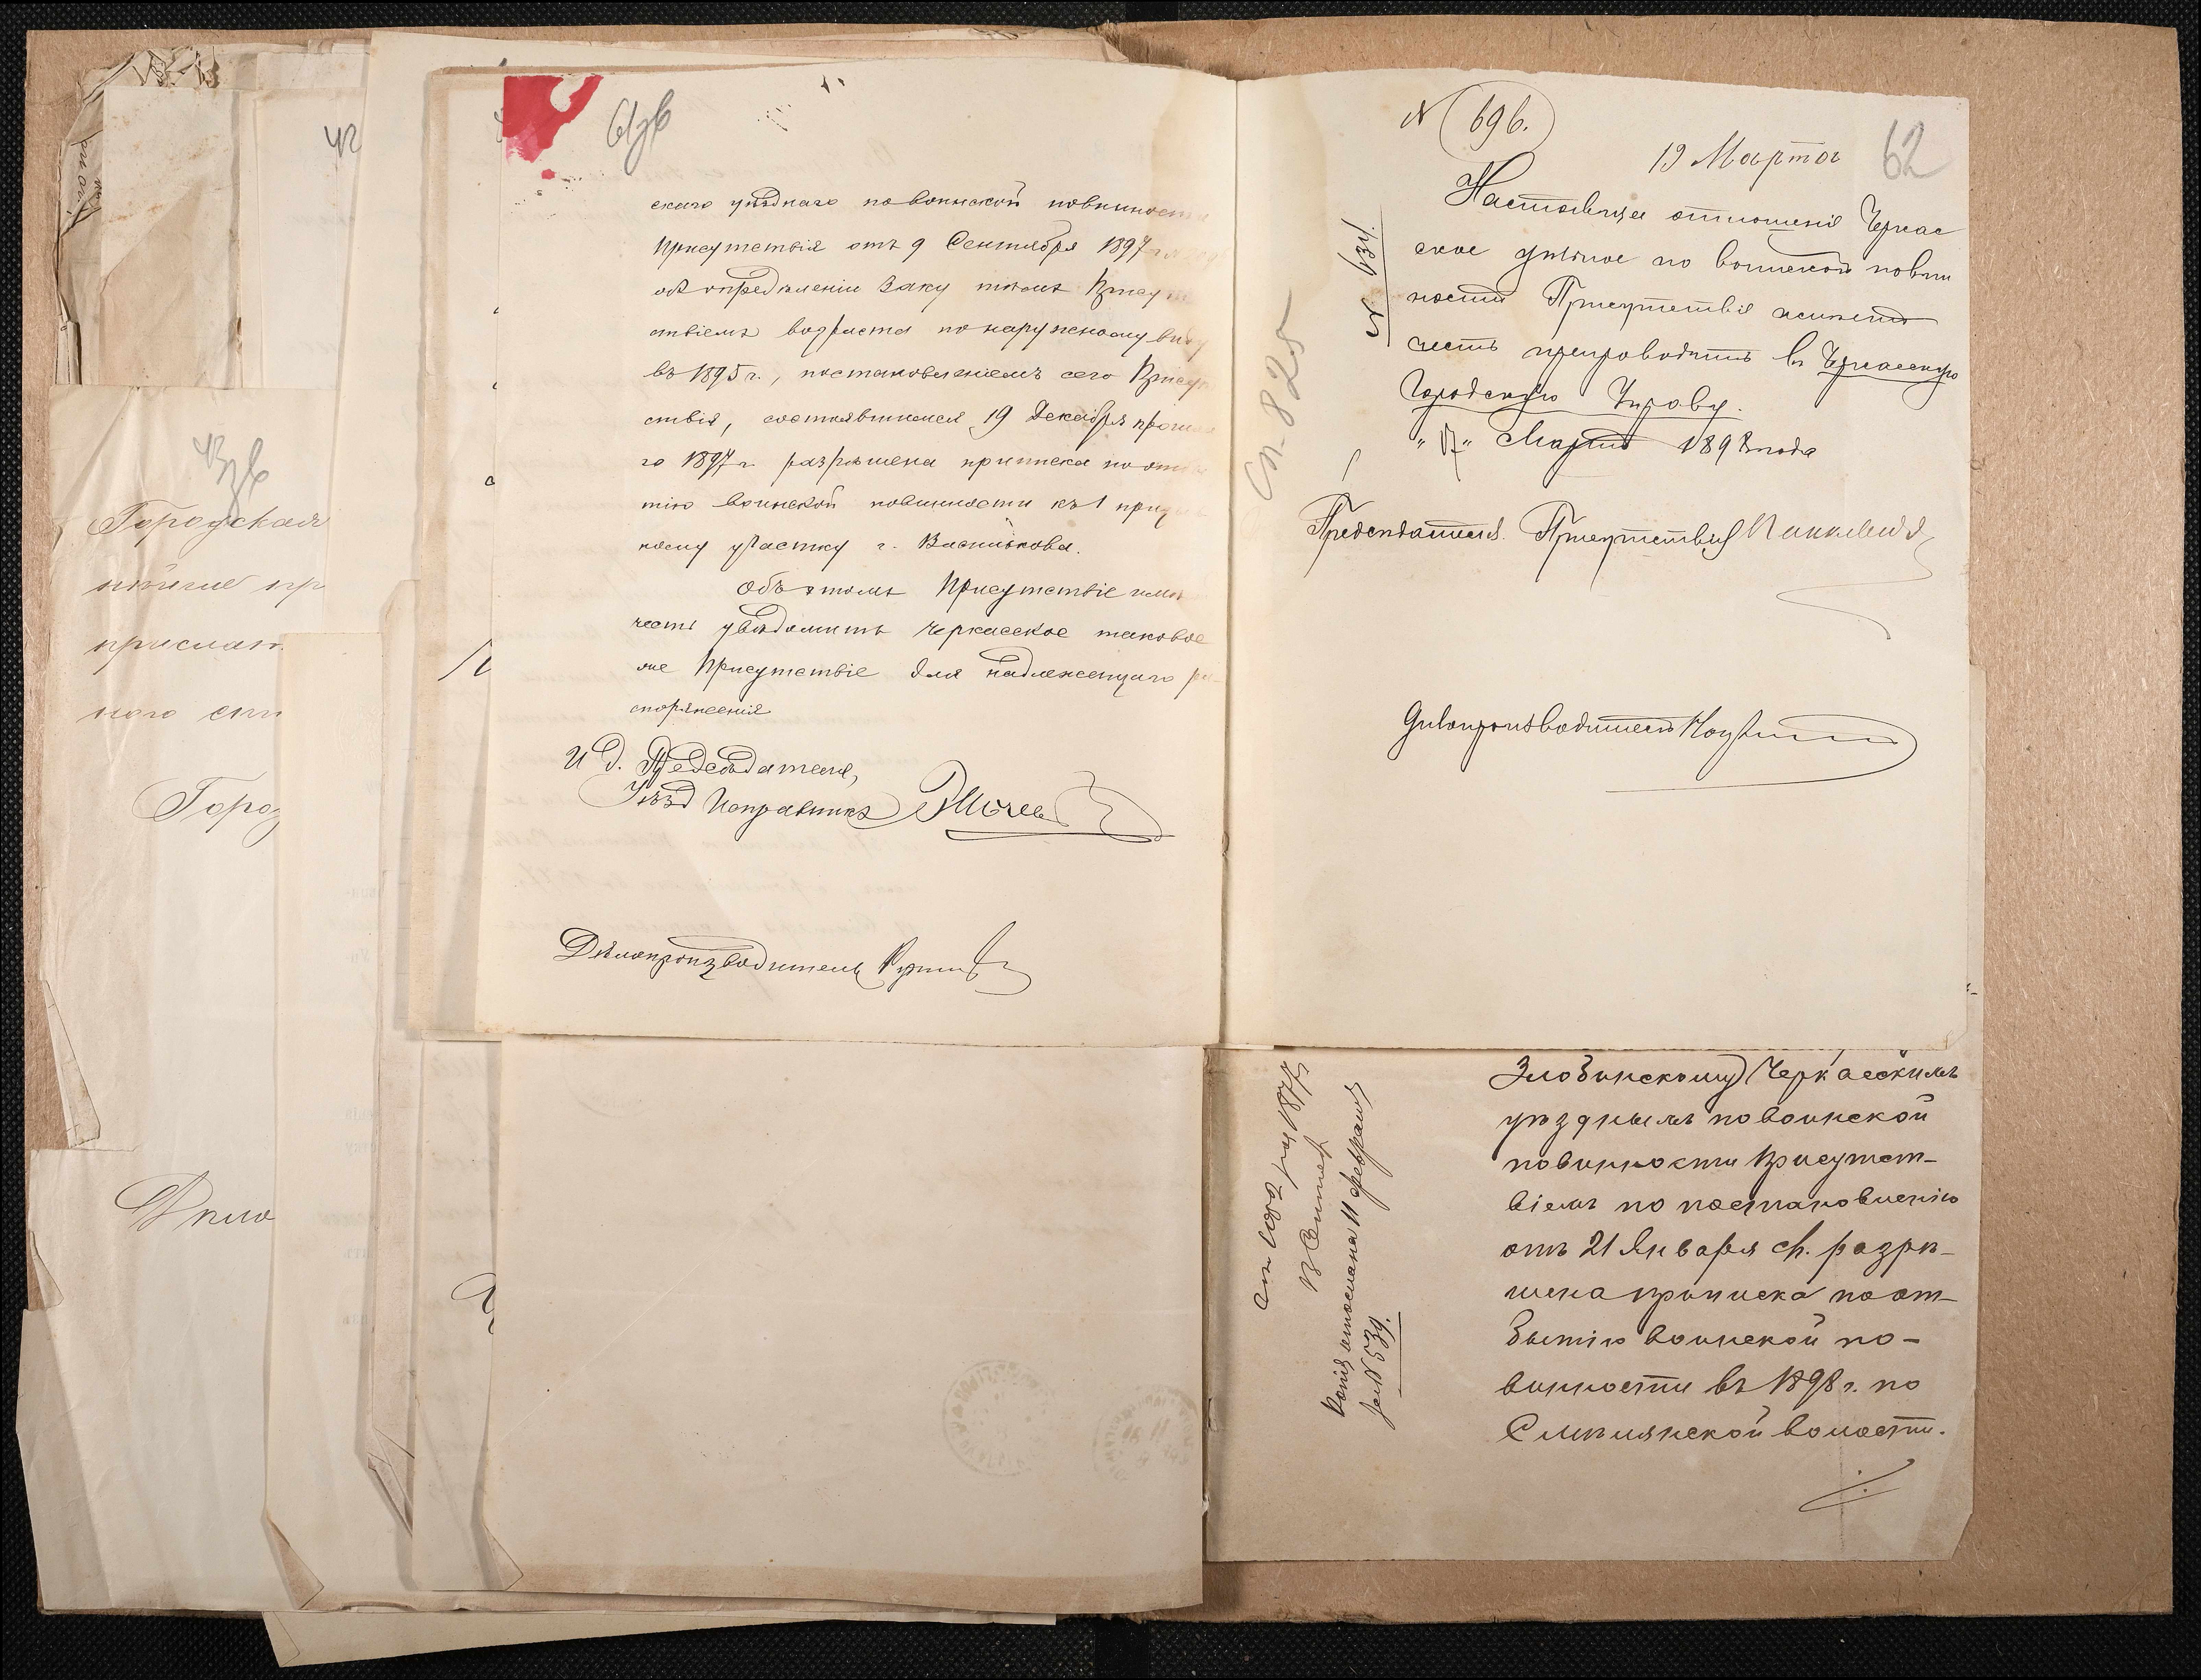 42
43 зв
Городская
прислат
ного спи
Город
Дѣло
61 зв
скаго уѣзднаго по воинской повинности
Присутствія отъ 9 Сентября 1897 г.
объ опредѣленіи Заку тѣмъ Присут
ствіемъ возраста по наружному виду
въ 1895 г., постановленіемъ сего Присут
ствія, состоявшимся 19 Декабря прошла
го 1897 г. разрѣшена приписка по отбы
тію воинской повинности къ 1 призыв
ному участку г. Василькова.
Объ этомъ Присутствіе имѣ
честь увѣдомить Черкасское таковое
же Присутствіе для надлежащаго ра-
споряженія
И д. Предсѣдателя,
Уѣзд Исправникъ
Дѣлопроизводитель
N 696.
19 Марта
62
N 634.
Сп. 825
Настоящее отношеніе Черкас
ское уѣздное по воинской повин
ности Присутствіе имѣетъ
честь препроводить въ Черкасскую
Городскую Управу.
"17" Марта 1898 года
Предсѣдатель Присутствія
Дѣлопроизводитель
Злобинскому Черкасскимъ
уѣзднымъ по воинской
повинности Присутст-
віемъ по постановленію
отъ 21 Января с/г. разрѣ-
шена приписка по от-
бытію воинской по-
винности въ 1898 г. по
Смѣлянской волости.
Копія отослана 11 февраля
за N 539.